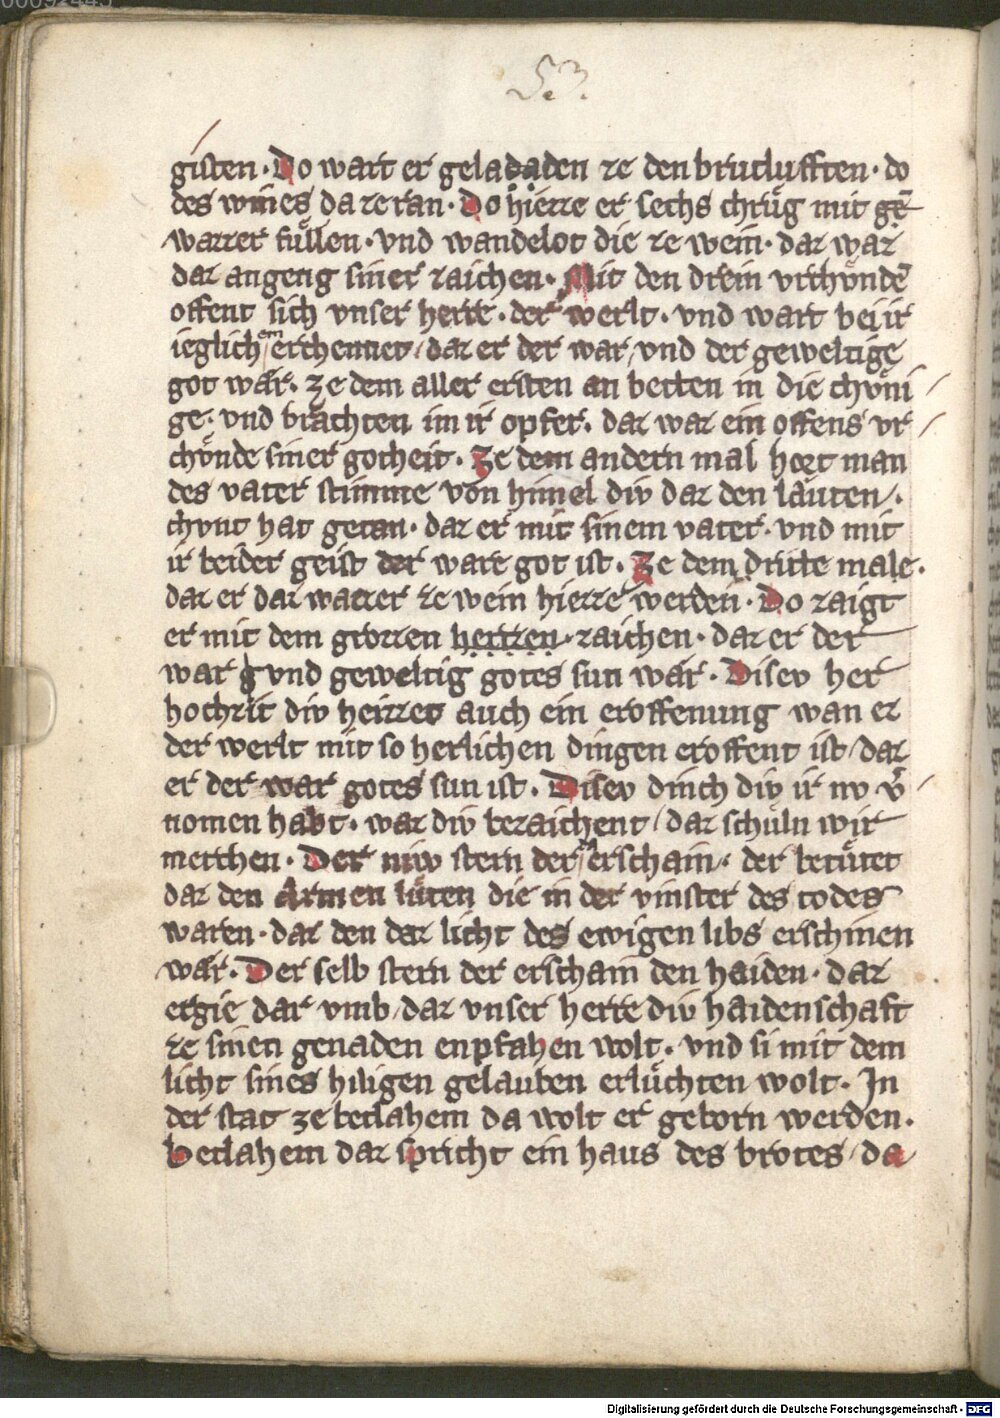 53.
gisten · Do wart er geladaden ze den brutlufften · do
des wines da zeran · Do hiezze er sechs chrůg mit gē
wazzer fůllen · vnd wandelot die ze wein · daz waz
daz angeng siner zaichen · Mit den drein vrchŏndē
offent sich vnser herre · der werlt · vnd wart bei ir
ieglichem erchennet / daz er der war / vnd der geweltige
got wār · ze dem aller ersten an betten in die chŏni
ge · vnd brachten im ir opfer · daz waz ein offens vr
chŏnde siner gotheit · Ze dem andern mal hort man
des vater stimme von himel div daz den lauten / ·
chvnt hat getan · daz er mit sinem vater · vnd mit
ir beider geist der ware got ist · Ze dem dritte male ·
daz er daz wazzer ze wein hiezze werden · Do zaigt
er mit dem grozzen hertzen · zaichen · daz er der
war vnd geweltig gotes sun waz · Disev her
hochzit div heizzet auch ein eroffenung wan er
der werlt mit so herlichen dingen eroffent ist / daz
er der war gotes sun ist · Disev dinch div ir nv v̄
nomen habt · waz div bezaichent / daz schůln wir
merchen · Der niw stern der erschain · der betůtet
daz den Armen lůten die in der vinster des todes
waren · daz den daz licht des ewigen libs erschinen
wār · Der selb stern der erschain den haiden · daz
ergie dar vmb / daz vnser herre div haidenschaft
ze sinen genaden enpfahen wolt · vnd si mit dem
licht sines hiligen gelauben erlůchten wolt · In
der stat ze betlahem da wolt er geborn werden ·
betlahem daz spricht ein haus des brotes / da
Digitalisierung gefördert durch die Deutsche Forschungsgemeinschaft - DFG